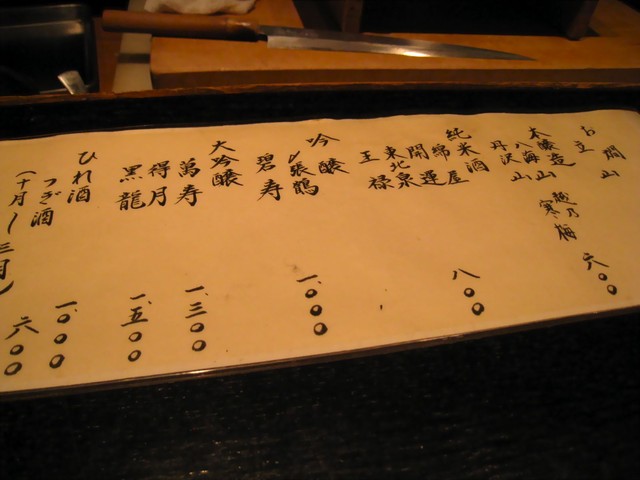 お立
開山
六〇〇
本醸造
八海山
越乃寒梅
丹沢山
純米酒
綿屋
八〇〇
開運
東北泉
王禄
吟醸
〆張鶴
一、〇〇〇
碧寿
大吟醸
萬寿
一、三〇〇
得月
黒龍
一、五〇〇
ひれ酒
一、〇〇〇
つぎ酒
六〇〇
(十月〜三月)